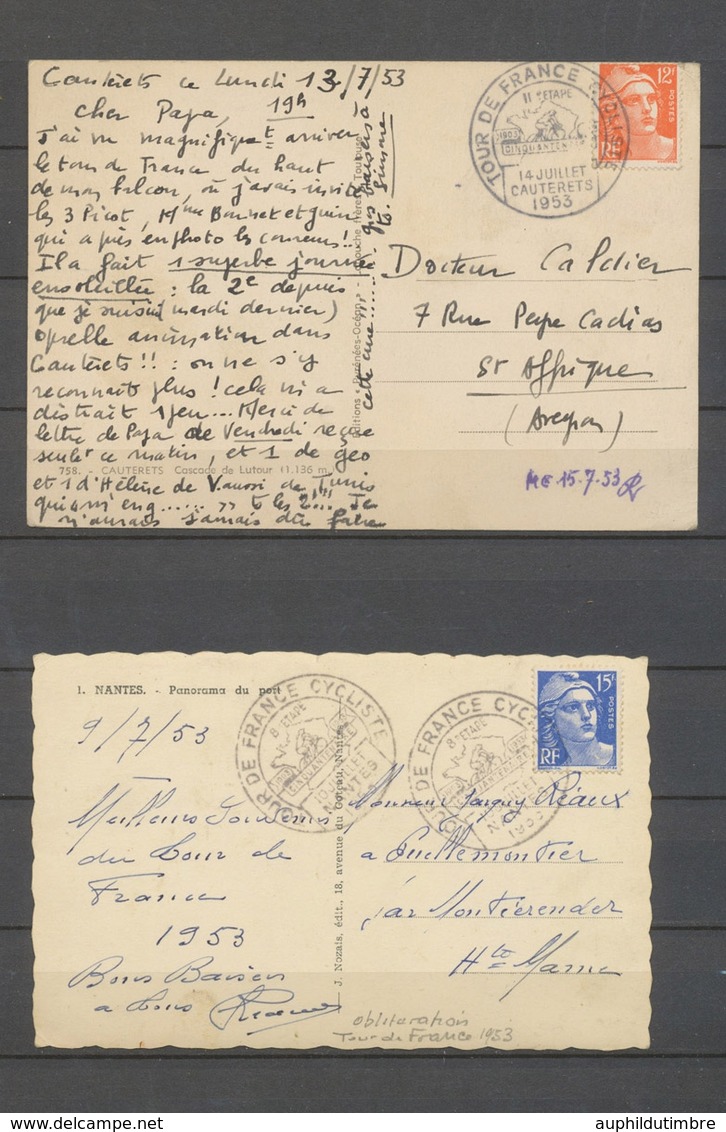 Cauterets ce Lundi 13/7/53
19h
Cher Papa,
J'ai vu magnifiquet arriver
le tour de France du haut
de mon balcon, où j'avais invité
les 3 Picot, Mme Bonnet et
qui a pris en photo les coureurs!!
Il a fait 1 superbe journée
ensoleillée : la 2e depuis
que je suis ici mardi dernier)
quelle animation dans
Cauterets!! : on ne s'y
reconnaît plus! cela m'a
distrait 1 peu... Merci de
lettre de Papa de Vendredi reçue
seulet ce matin, et 1 de geo
758. - CAUTERETS Cascade de Lutour (1.136 m.)
et 1 d'Hélène de V. aussi de Tunis
qui m'eng...... t les 2!!! Je
n'aurais jamais dû faire
cette cure!!! ...... gros baisers à
Editions « Pyrénées-Océan » - frères, Toulouse
TOUR DE FRANCE CYCLISTE
II ETAPE
1903
CINQUANTENAIRE
14 JUILLET
CAUTERETS
1953
12F
POSTES
RF
Docteur Caldier
7 Rue Pape Cadias
St Affrique
(Aveyron)
ME 15.7.53
1. NANTES. - Panorama du port
9/7/53
Meilleurs Souvenirs
du Tour de
France
1953
Bons Baisers
à tous
J. Nozais, édit., 18, avenue du Coteau, Nantes
TOUR DE FRANCE CYCLISTE
8 ETAPE
1903
CINQUANTENAIRE
10 JUILLET
NANTES
TOUR DE FRANCE CYC
8 ETAPE
1953
NANTES
1953
15F
POSTES
RF
Monsieur Jacquy Réaux
à Puellemontier
par Montierender
Hte Marne
obliteration
Tour de France 1953
auphildutimbre.com